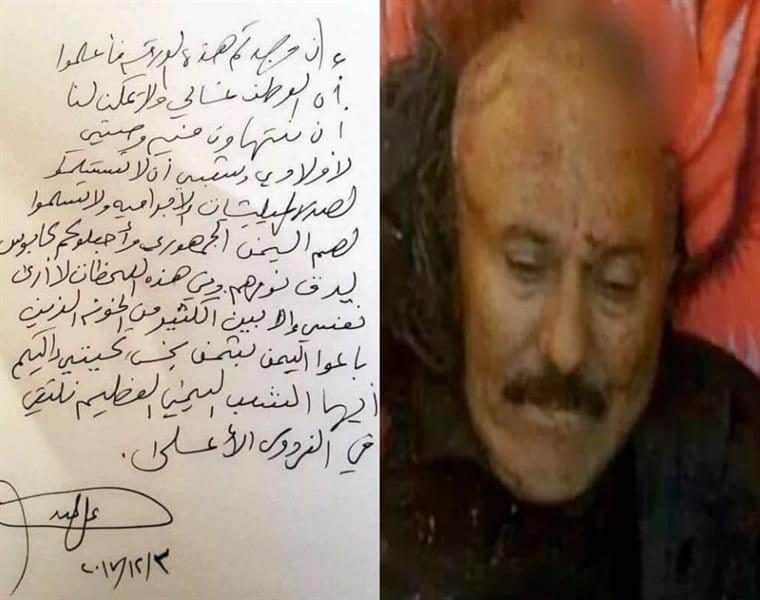 إن وجدتم هذه الورقة فأعلموا
بأن الوطن غالي ولا يمكن لنا
ان نتهاون فيه وصيتي
لاولادي وشعبي أن لا تستسلموا
لهذه المليشات الاجراميه ولا تسلموا
لهم اليمن الجمهوري وأجعلوكم كابوس
نومهم وفي هذه اللحظات لا أرى
نفسي إلا بين الكثير من الخونه الذين
باعوا اليمن بثمن بخس تحيتي إليكم
أيها الشعب اليمني العظيم نلتقي
في الفردوس الأعلى.
٢٠١٧/١٢/٣